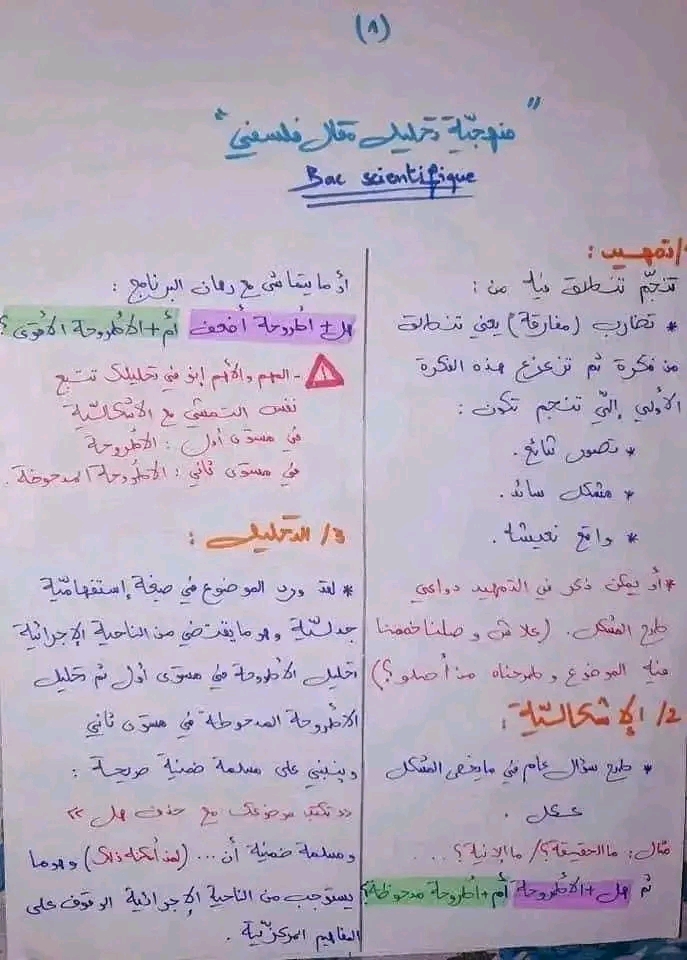 (٨)
"منهجيّة تحليل مقال فلسفي"
Bac scientifique
1/ تمهيد :
تنجّم تنطلق فيه من :
* تضارب (مفارقة) يعني تنطلق
من فكرة ثم تزعزع هذه الفكرة
الأولى إلّي تنجم تكون :
* تصور شائع.
* مشكل سائد.
* واقع نعيشه.
* أو يمكن ذكر في التمهيد دواعي
طرح المشكل. (علاش وصلنا خممنا
فيه الموضوع و طرحناه من أصلو؟)
2/ الإشكاليّة :
* طرح سؤال عام في ما يخص المشكل
مثال: ما الحقيقة؟/ ما الإنية؟...
ثم هل + الأطروحة أم + أطروحة مدحوضة؟
أو ما يتماشى مع رهان البرنامج :
هل + أطروحة أضعف أم + الأطروحة الأقوى؟
- المهم والأهم إنو في تحليلك تتبع
نفس التمشي مع الإشكاليّة
في مستوى أول : الأطروحة
في مستوى ثاني : الأطروحة المدحوضة.
3/ التحليل :
* لقد ورد الموضوع في صيغة إستفهاميّة
جدليّة وهو ما يقتضي من الناحية الإجرائية
تحليل الأطروحة في مستوى أول ثم تحليل
الأطروحة المدحوضة في مستوى ثاني
وينبني على مسلمة ضمنية صريحة :
<< تكتب موضوعك مع حذف هل >>
ومسلمة ضمنية أن ... (لهذا أمكنه ذلك) وهو ما
يستوجب من الناحية الإجرائية الوقوف على
المفاهيم المركزيّة.